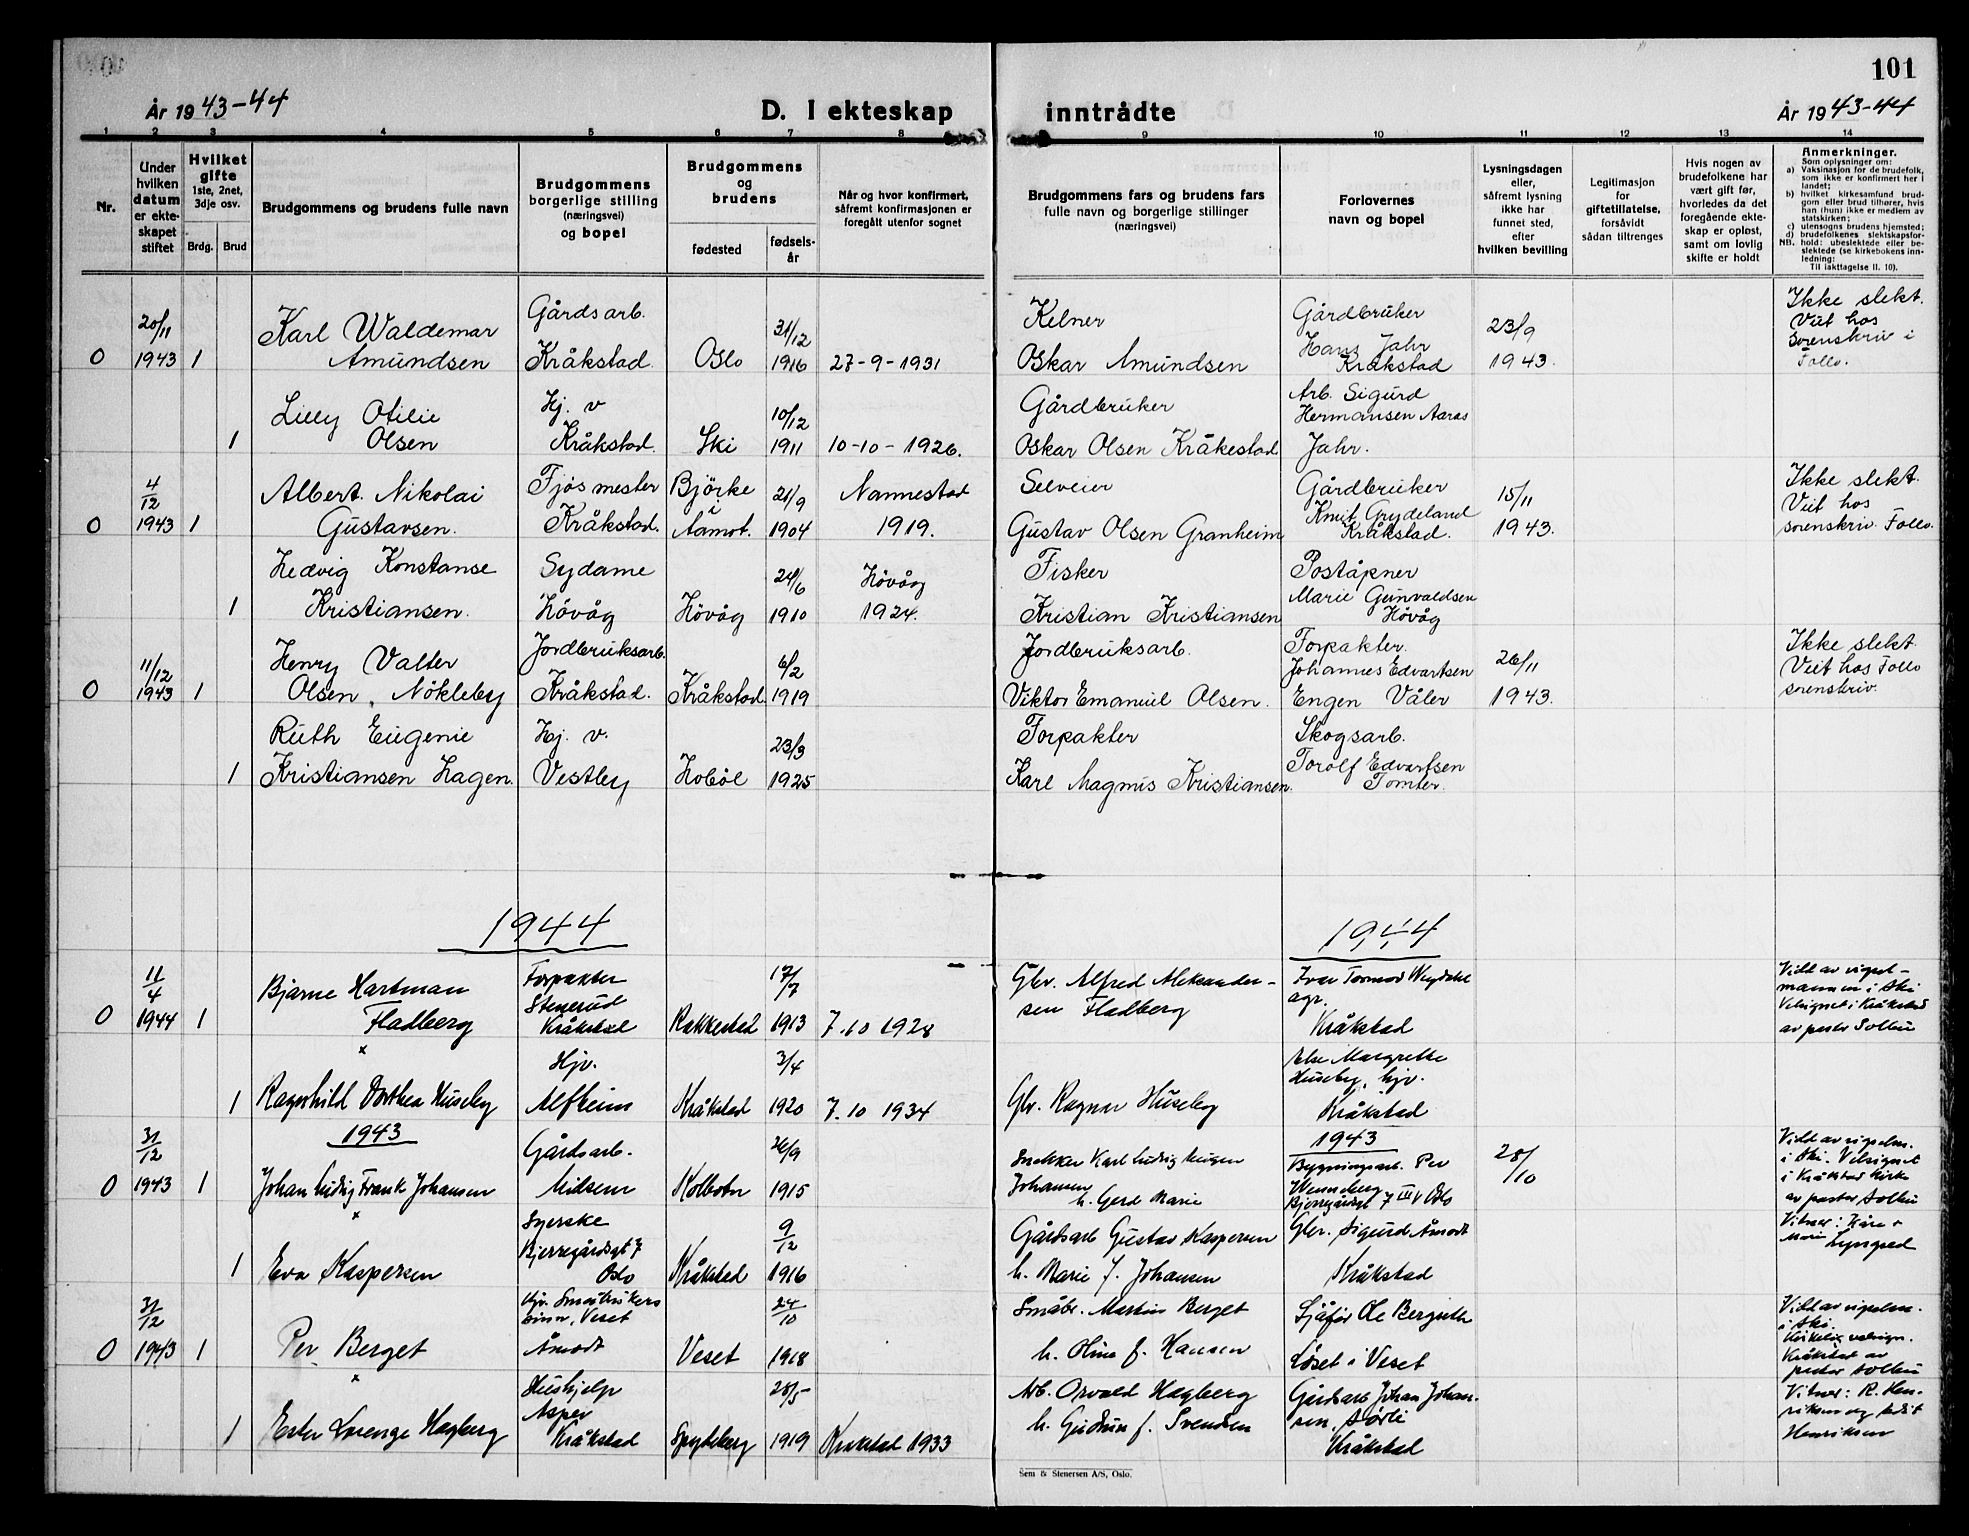 101
År 1943-44
D. I ekteskap inntrådte
År 1943-44
1 2 3 4 5 6 7 8 9 10 11 12 13 14
Nr.
Under hvilken datum er ekteskapet stiftet
Hvilket gifte
1ste, 2net, 3dje osv.
Brdg. Brud
Brudgommens og brudens fulle navn
Brudgommens borgerlige stilling (næringsvei) og bopel
Brudgommens og brudens
fødested
fødselsår
Når og hvor konfirmert, såfremt konfirmasjonen er foregått utenfor sognet
Brudgommens fars og brudens fars fulle navn og borgerlige stillinger (næringsvei)
Forlovernes navn og bopel
Lysningsdagen eller, såfremt lysning ikke har funnet sted, efter hvilken bevilling
Legitimasjon for giftetillatelse, forsåvidt sådan tiltrenges
Hvis nogen av brudefolkene har vært gift før, hvorledes da det foregående ekteskap er opløst, samt om lovlig skifte er holdt
Anmerkninger.
Som oplysninger om:
a) Vaksinasjon for de brudefolk, som ikke er konfirmert her i landet;
b) hvilket kirkesamfund brudgom eller brud tilhører, hvis han (hun) ikke er medlem av statskirken;
c) utensogns brudens hjemsted;
d) brudefolkenes slektskapsforhold: ubeslektede eller beslektede (se kirkebokens innledning:
NB.
Til iakttagelse II. 10).
0 20/11 1943 1 Karl Waldemar Amundsen Gårdsarb. Kråkstad Oslo 31/12 1916 27-9-1931 Kelner Oskar Amundsen Gårdbruker Hans Jahr Kråkstad 23/9 1943. Ikke slekt. Viet hos Sorenskriv i Follo.
1 Lilly Otilie Olsen Hj. v Kråkstad. Ski 10/12 1911 10-10-1926. Gårdbruker Oskar Olsen Kråkestad Arb. Sigurd Hermansen Aaras Jahr.
0 4/12 1943 1 Albert Nikolai Gustavsen. Fjøsmester Kråkstad. Björke i Aamot. 21/9 1904 Nannestad 1919. Selveier Gustav Olsen Granheim Gårdbruker Knut Grydeland Kråkstad. 15/11 1943. Ikke slekt. Viet hos sorenskriv. Follo.
1 Hedvig Konstanse Kristiansen. Sydame Hövåg Hövåg 24/6 1910 Hövåg 1924. Fisker Kristian Kristiansen Poståpner Marie Gunvaldsen Hövåg
0 11/12 1943 1 Henry Valter Olsen, Nökleby Jordbruksarb. Kråkstad. Kråkstad. 6/2 1919 Jordbruksarb. Viktor Emanuel Olsen. Forpakter. Johannes Edvartsen Engen Våler 26/11 1943. Ikke slekt. Viet hos Follo sorenskriv.
1 Ruth Eugenie Kristiansen Hagen. Hj. v. Vestby Hobøl 23/3 1925 Forpakter Karl Magnus Kristiansen. Skogsarb. Torolf Edvartsen Tomter.
1944 1944
0 11/4 1944 1 Bjarne Hartman Fladberg Forpakter Stenerud Kråkstad Rakkestad 17/7 1913 7.10 1928 Gbr. Alfred Aleksandersen Fladberg Ivar Tormod agr. Kråkstad Viet av mannen i Ski Velsignet i Kråkstad av pastor
x
1 Ragnhild Dorthea Huseby Hjv. Alfheim Kråkstad 3/4 1920 7.10 1934 Gbr. Ragnar Huseby Else Margrethe Huseby, hjv. Kråkstad
1943 1943
0 31/12 1943 1 Johan Ludvig Frank Johansen Gårdsarb. Kolbotn 26/9 1915 Snekker Karl Ludvig Johansen h. Gerd Marie Bygningsarb. Per Wenneberg Bjerregårdsgt 7 III V Oslo 28/10 i Ski. Velsignet i Kråkstad kirke av pastor
x
1 Eva Kaspersen Syerske Bjerregårdsgt 7 Oslo Kråkstad 9/12 1916 Gårdsarb Gustav Kaspersen h. Marie f. Johansen Gbr. Sigurd Åmodt Kråkstad Vitner: Kåre + Marie
0 31/12 1943 1 Per Berget Veset Åmodt Veset 24/10 1918 Småbr. Martin Berget h. Oline f. Hansen Sjåfør Ole Løset i Veset i Ski. Kirkelig velsign. Kråkstad av pastor
x
1 Ester Lorenge Hagberg Hushjelp Asper Kråkstad Spydeberg 28/5 1919 Kråkstad 1933 Arb. Osvald Hagberg h. Gudrun f. Svendsen Gårdsarb Johan Johansen, Sørli Kråkstad Vitner: R. Henriksen og Henriksen
Sem & Stenersen A/S, Oslo.